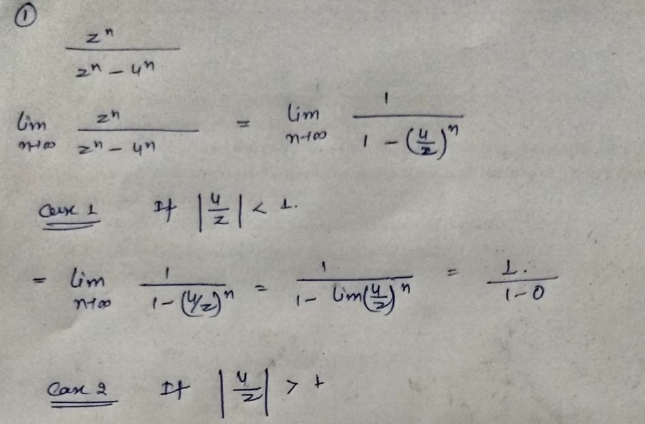 ①
zⁿ / (zⁿ - 4ⁿ)
lim n→∞ zⁿ / (zⁿ - 4ⁿ) = lim n→∞ 1 / (1 - (4/z)ⁿ)
Case 1 If |4/z| < 1.
= lim n→∞ 1 / (1 - (4/z)ⁿ) = 1 / (1 - lim(4/z)ⁿ) = 1. / (1-0)
Case 2 If |4/z| > 1